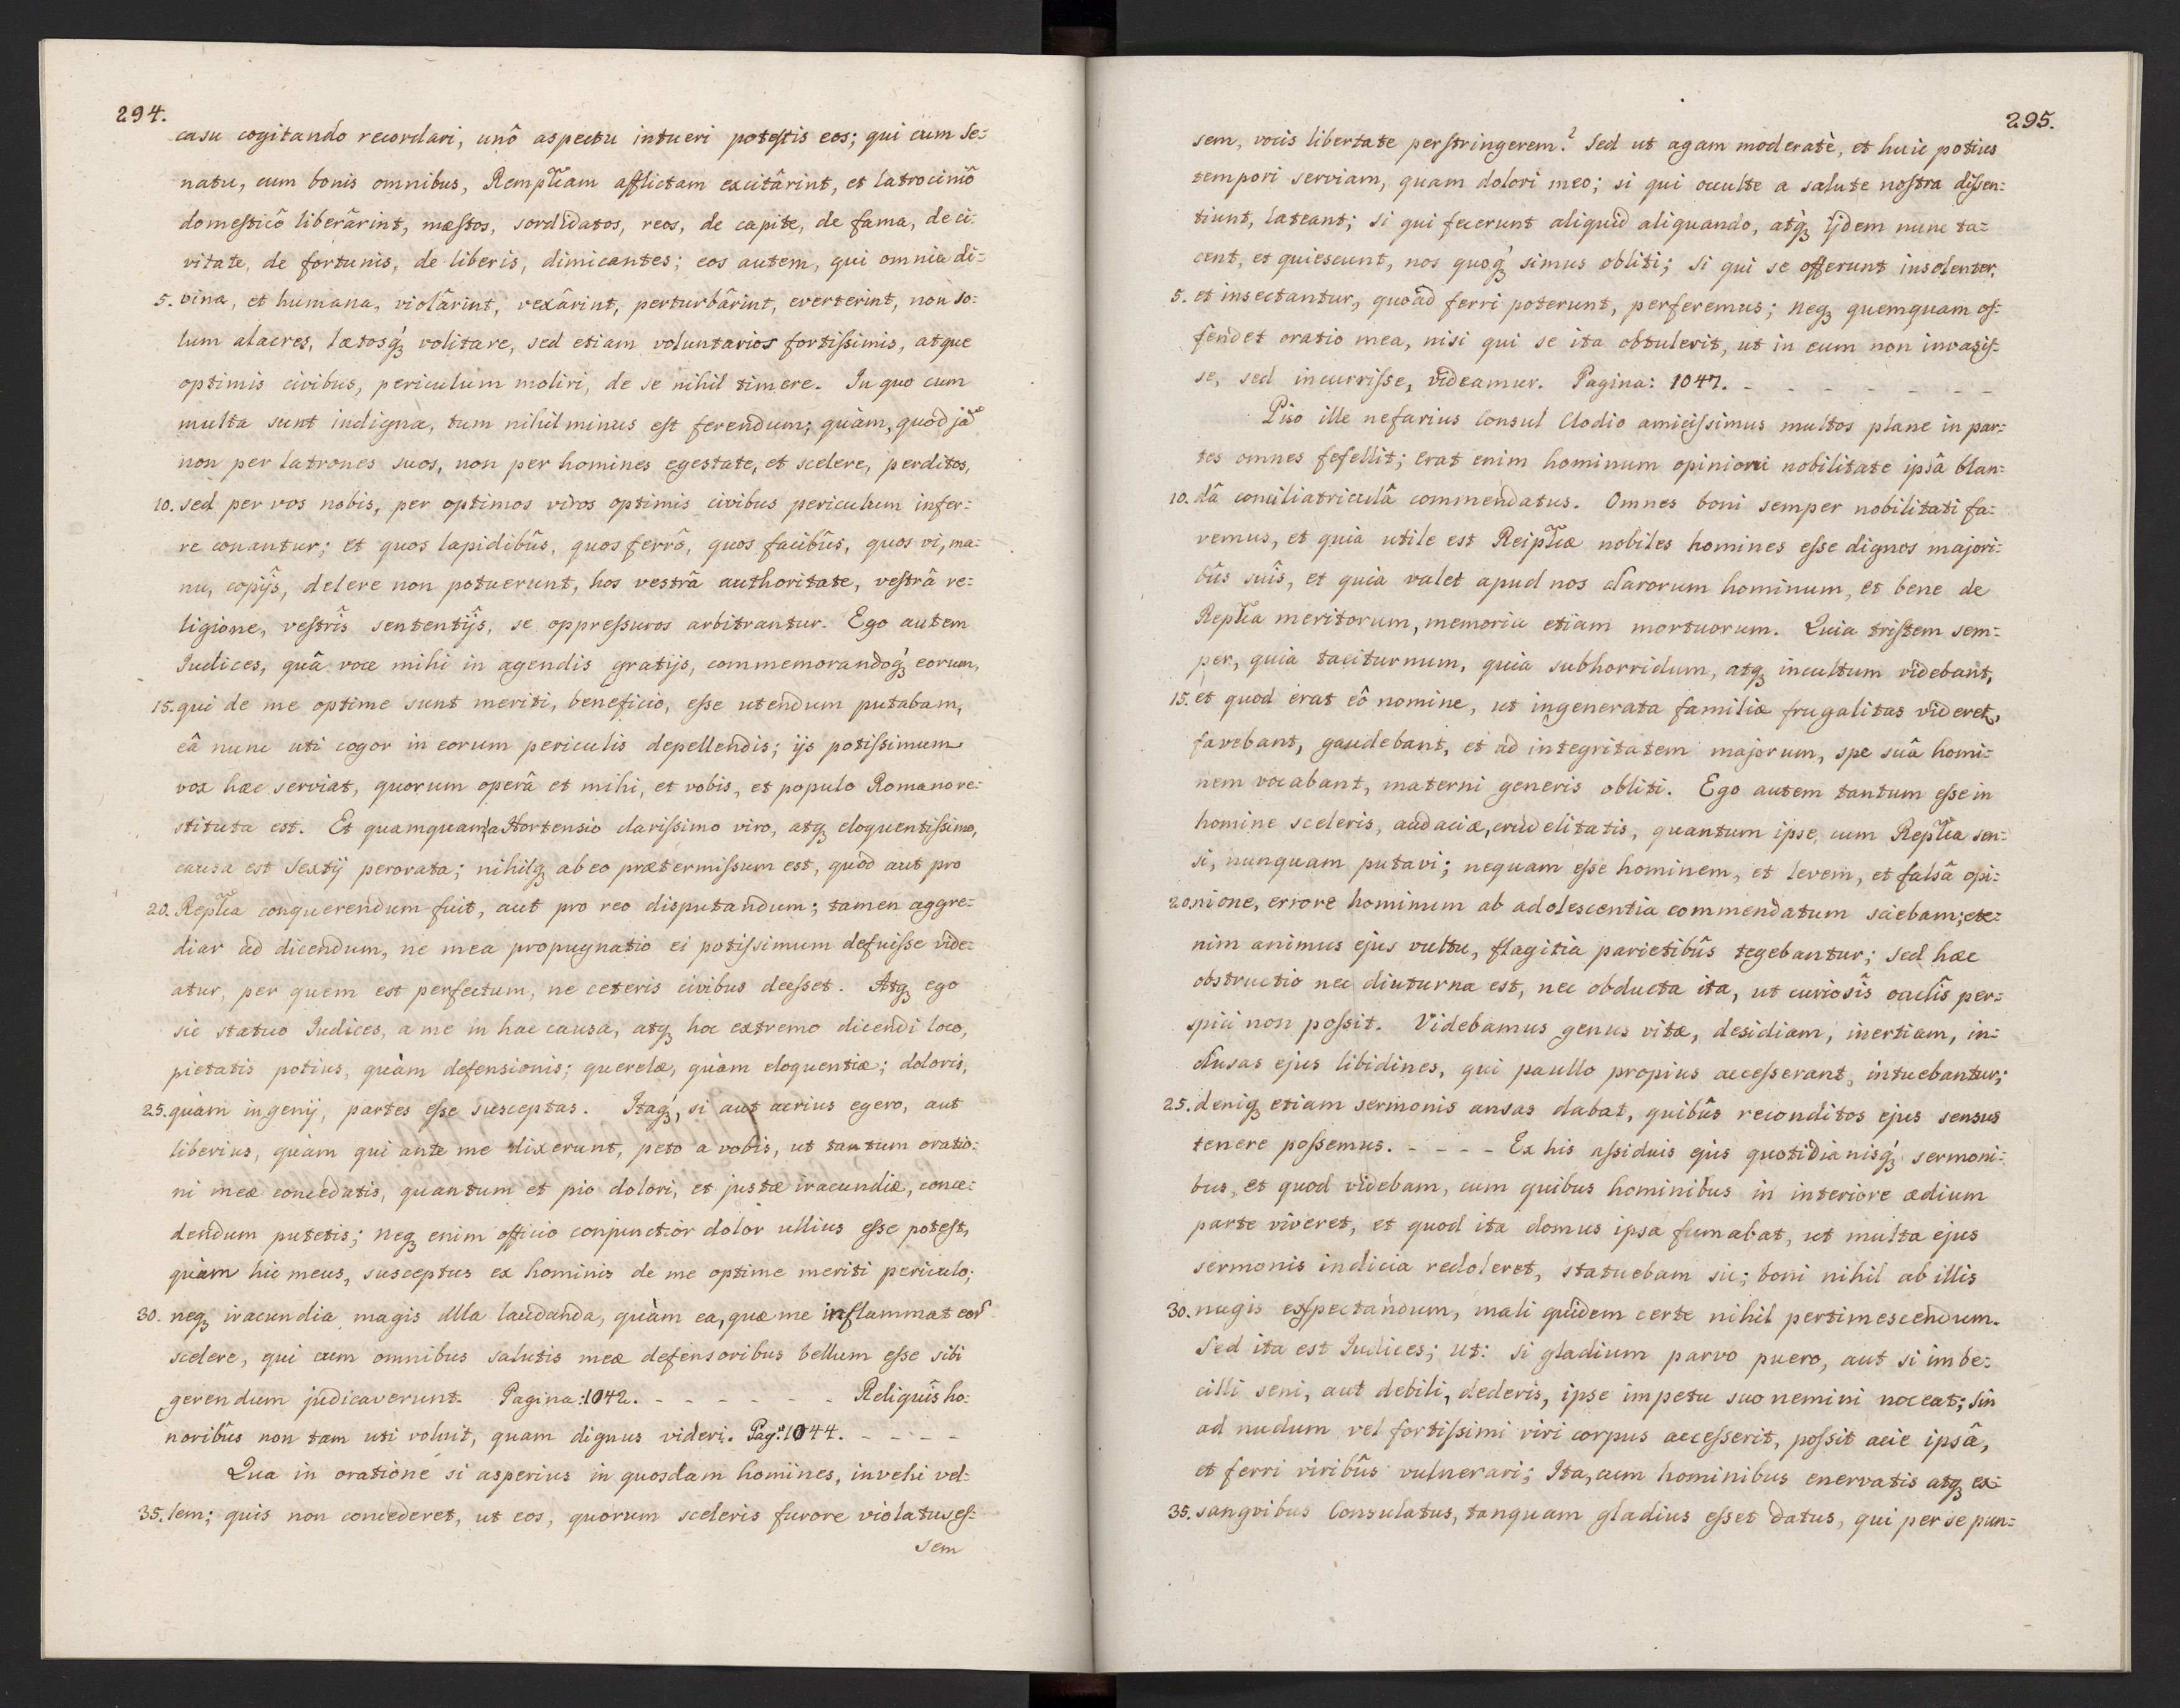 294.
casu cogitando recordari, unô aspectu intueri potestis eos; qui cum Se=
natu, cum bonis omnibus, Remplicam afflictam excitârint, et latrociniô
domesticô liberârint, mæstos, sordidatos, reos, de capite, de fama, de ci=
vitate, de fortunis, de liberis, dimicantes; eos autem, qui omnia di=
5. vina, et humana, violârint, vexârint, perturbârint, everterint, non so=
lum alacres, lætosq́ꝫ volitare, sed etiam voluntarios fortissimis, atque
optimis civibus, periculum moliri, de se nihil timere. In quo cum
multa sunt indigna, tum nihil minus est ferendum; quàm, quod jã
non per latrones suos, non per homines egestate, et scelere, perditos,
10. sed per vos nobis, per optimos viros optimis civibus periculum infer=
re conantur; et quos lapidibûs, quos ferrô, quos facibûs, quos vi, ma=
nu, copijs, delere non potuerunt, hos vestrâ authoritate, vestrâ re=
ligione, vestrîs sententijs, se oppressuros arbitrantur. Ego autem
Iudices, quâ voce mihi in agendis gratijs, commemorandoq́ꝫ eorum,
15. qui de me optime sunt meriti, beneficio, esse utendum putabam,
eâ nunc uti cogor in eorum periculis depellendis; ijs potissimum
vox hæc serviat, quorum operâ et mihi, et vobis, et populo Romano re=
stituta est. Et quamquam a Hortensio clarissimo viro, atqꝫ eloquentissimo,
causa est Sextij perorata; nihilqꝫ ab eo prætermissum est, quod aut pro
20. Replica conquerendum fuit, aut pro reo disputandum; tamen aggre=
diar ad dicendum, ne mea propugnatio ei potissimum defuisse vide=
atur, per quem est perfectum, ne ceteris civibus deesset. Atqꝫ ego
sic statuo Iudices, a me in hac causa, atqꝫ hoc extremo dicendi loco,
pietatis potius, quàm defensionis; querelæ, quàm eloquentiæ; doloris,
25. quàm ingenij, partes esse susceptas. Itaq́ꝫ, si aut acrius egero, aut
liberius, quàm qui ante me dixerunt, peto a vobis, ut tantum oratio=
ni meæ concedatis, quantum et pio dolori, et justæ iracundiæ, conce=
dendum putetis; neqꝫ enim officio conjunctior dolor ullius esse potest,
quàm hic meus, susceptus ex hominis de me optime meriti periculo;
30. neqꝫ iracundia magis ulla laudanda, quàm ea, quæ me inflammat eoꝝ
scelere, qui cum omnibus salutis meæ defensoribus bellum esse sibi
gerendum judicaverunt. Pagina: 1042. - - - - - - - Reliquîs ho=
noribûs non tam uti voluit, quam dignus videri. Pag: 1044. - - - -
Qua in oratione si asperius in quosdam homines, invehi vel=
35. lem; quis non concederet, ut eos, quorum sceleris furore violatus es=
sem
295.
sem, vocis libertate perstringerem? Sed ut agam moderatè, et huic potius
tempori serviam, quam dolori meo; si qui occulte a salute nostra dissen=
tiunt, lateant; si qui fecerunt aliquid aliquando, atq́ꝫ ijdem nunc ta=
cent, et quiescunt, nos quoq́ꝫ simus obliti; si qui se offerunt insolenter,
5. et insectantur, quoad ferri poterunt, perferemus; neqꝫ quemquam of=
fendet oratio mea, nisi qui se ita obtulerit, ut in eum non invasis=
se, sed incurrisse, videamur. Pagina: 1047. - - - - - - - -
Piso ille nefarius Consul Clodio amicissimus multos plane in par=
tes omnes fefellit; erat enim hominum opinioni nobilitate ipsâ blan=
10. dâ conciliatriculâ commendatus. Omnes boni semper nobilitati fa=
vemus, et quia utile est Reiplicæ nobiles homines esse dignos majori=
bûs suîs, et quia valet apud nos clarorum hominum, et bene de
Replica meritorum, memoria etiam mortuorum. Quia tristem sem=
per, quia taciturnum, quia subhorridum, atqꝫ incultum videbant,
15. et quod erat eô nomine, ut ingenerata familiæ frugalitas videret,
favebant, gaudebant, et ad integritatem majorum, spe suâ homi=
nem vocabant, materni generis obliti. Ego autem tantum esse in
homine sceleris, audaciæ, crudelitatis, quantum ipse, cum Replica sen=
si, nunquam putavi; nequam esse hominem, et levem, et falsâ opi=
20. nione, errore hominum ab adolescentia commendatum sciebam; ete=
nim animus ejus vultu, flagitia parietibûs tegebantur; sed hæc
obstructio nec diuturna est, nec obducta ita, ut curiosîs oculîs per=
spici non possit. Videbamus genus vitæ, desidiam, inertiam, in=
clusas ejus libidines, qui paullo propius accesserant, intuebantur;
25. deniqꝫ etiam sermonis ansas dabat, quibûs reconditos ejus sensus
tenere possemus. - - - - Ex his assiduis ejus quotidianisq́ꝫ sermoni=
bus, et quod videbam, cum quibus hominibus in interiore ædium
parte viveret, et quod ita domus ipsa fumabat, ut multa ejus
sermonis indicia redoleret, statuebam sic; boni nihil ab illis
30. nugis exspectandum, mali quidem certe nihil pertimescendum.
Sed ita est Iudices; ut: si gladium parvo puero, aut si imbe=
cilli seni, aut debili, dederis, ipse impetu suo nemini noceat; sin
ad nudum vel fortissimi viri corpus accesserit, possit acie ipsâ,
et ferri viribûs vulnerari; Ita, cum hominibus enervatis atqꝫ ex=
35. sangvibus Consulatus, tanquam gladius esset datus, qui per se pun=